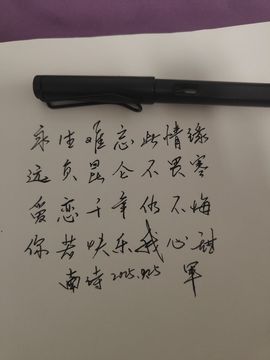 永生难忘此情缘
远负昆仑不畏寒
爱恋千年仍不悔
你若快乐我心甜
南诗 2025.9.25 军